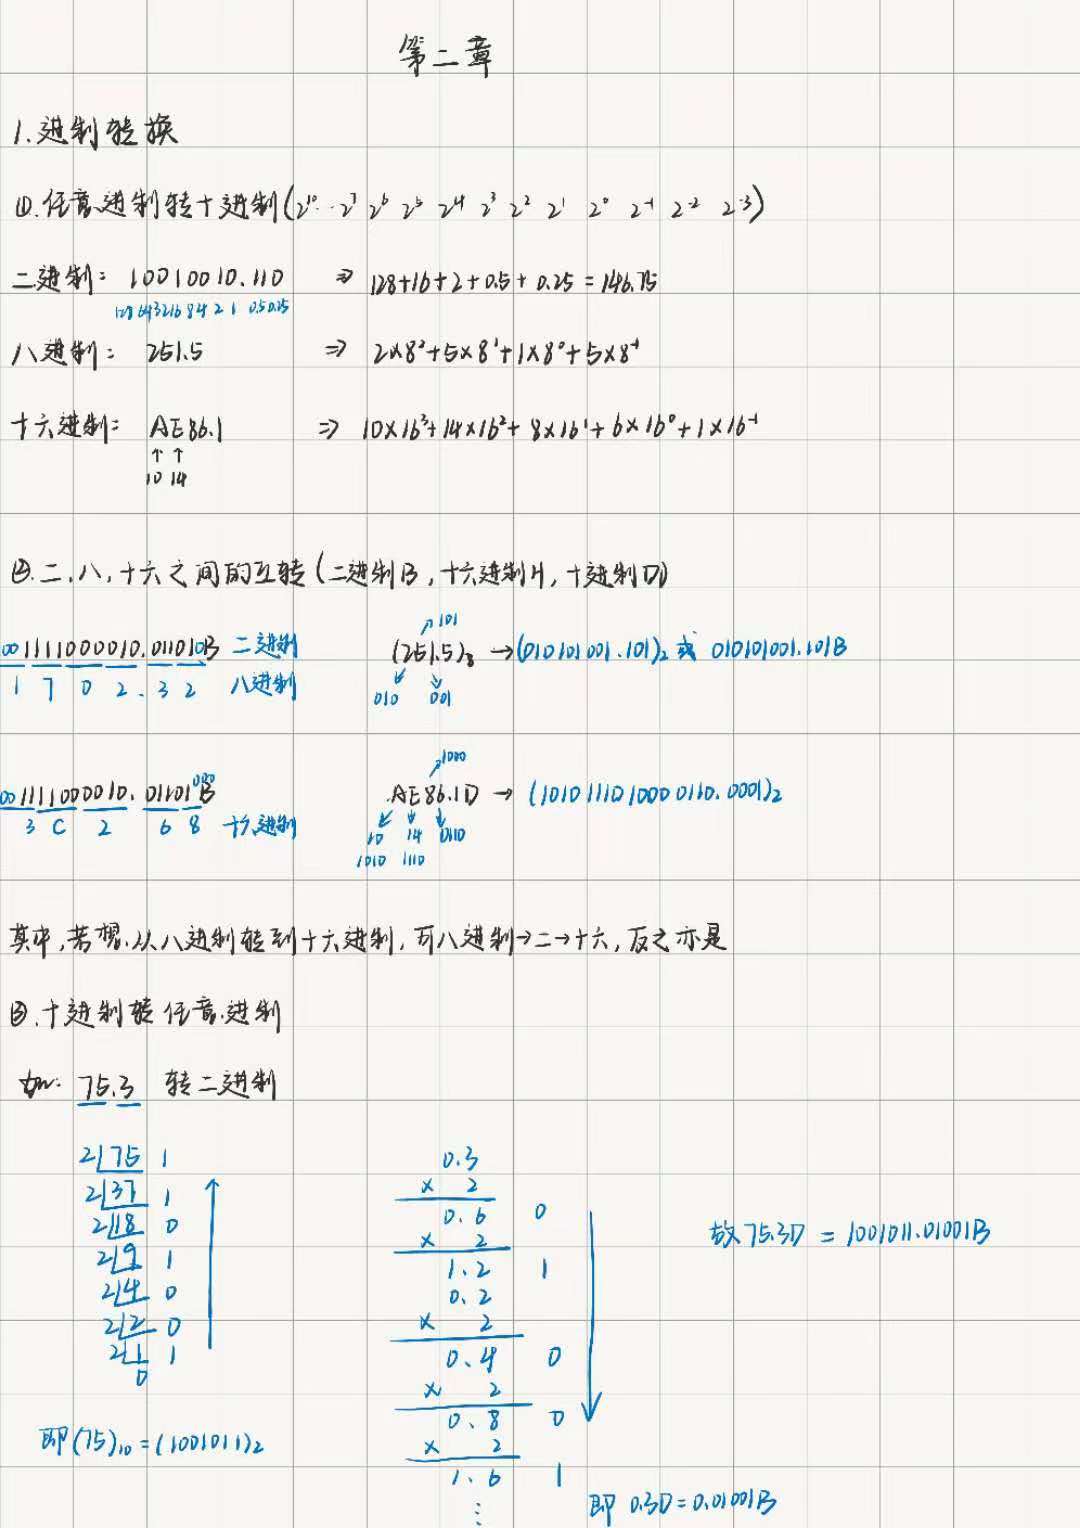 第二章
1.进制转换
①.任意进制转十进制(2¹⁰…2⁷ 2⁶ 2⁵ 2⁴ 2³ 2² 2¹ 2⁰ 2⁻¹ 2⁻² 2⁻³)
二进制: 10010010.110 ⇒ 128+16+2+0.5+0.25=146.75
128 64 32 16 8 4 2 1 0.5 0.25
八进制: 251.5 ⇒ 2×8²+5×8¹+1×8⁰+5×8⁻¹
十六进制: AE86.1 ⇒ 10×16³+14×16²+8×16¹+6×16⁰+1×16⁻¹
↑ ↑
10 14
②.二,八,十六之间的互转(二进制B,十六进制H,十进制D)
101
001111000010.011010B 二进制 (251.5)₈ →(010101001.101)₂或 010101001.101B
1 7 0 2 . 3 2 八进制 010 001
1000
001111000010.01101000B AE86.1D → (1010111010000110.0001)₂
3 C 2 6 8 十六进制 10 14 0110
1010 1110
其中,若想从八进制转到十六进制,可八进制→二→十六,反之亦是
③.十进制转任意进制
如: 75.3 转二进制
2|75 1 0.3
2|37 1 × 2
2|18 0 0.6 0
× 2 故75.3D = 1001011.01001B
2|9 1 1.2 1
2|4 0 0.2
2|2 0 × 2
2|1 1 0.4 0
0 × 2
0.8 0
即(75)₁₀=(1001011)₂ × 2
1.6 1
⋮ 即 0.3D=0.01001B